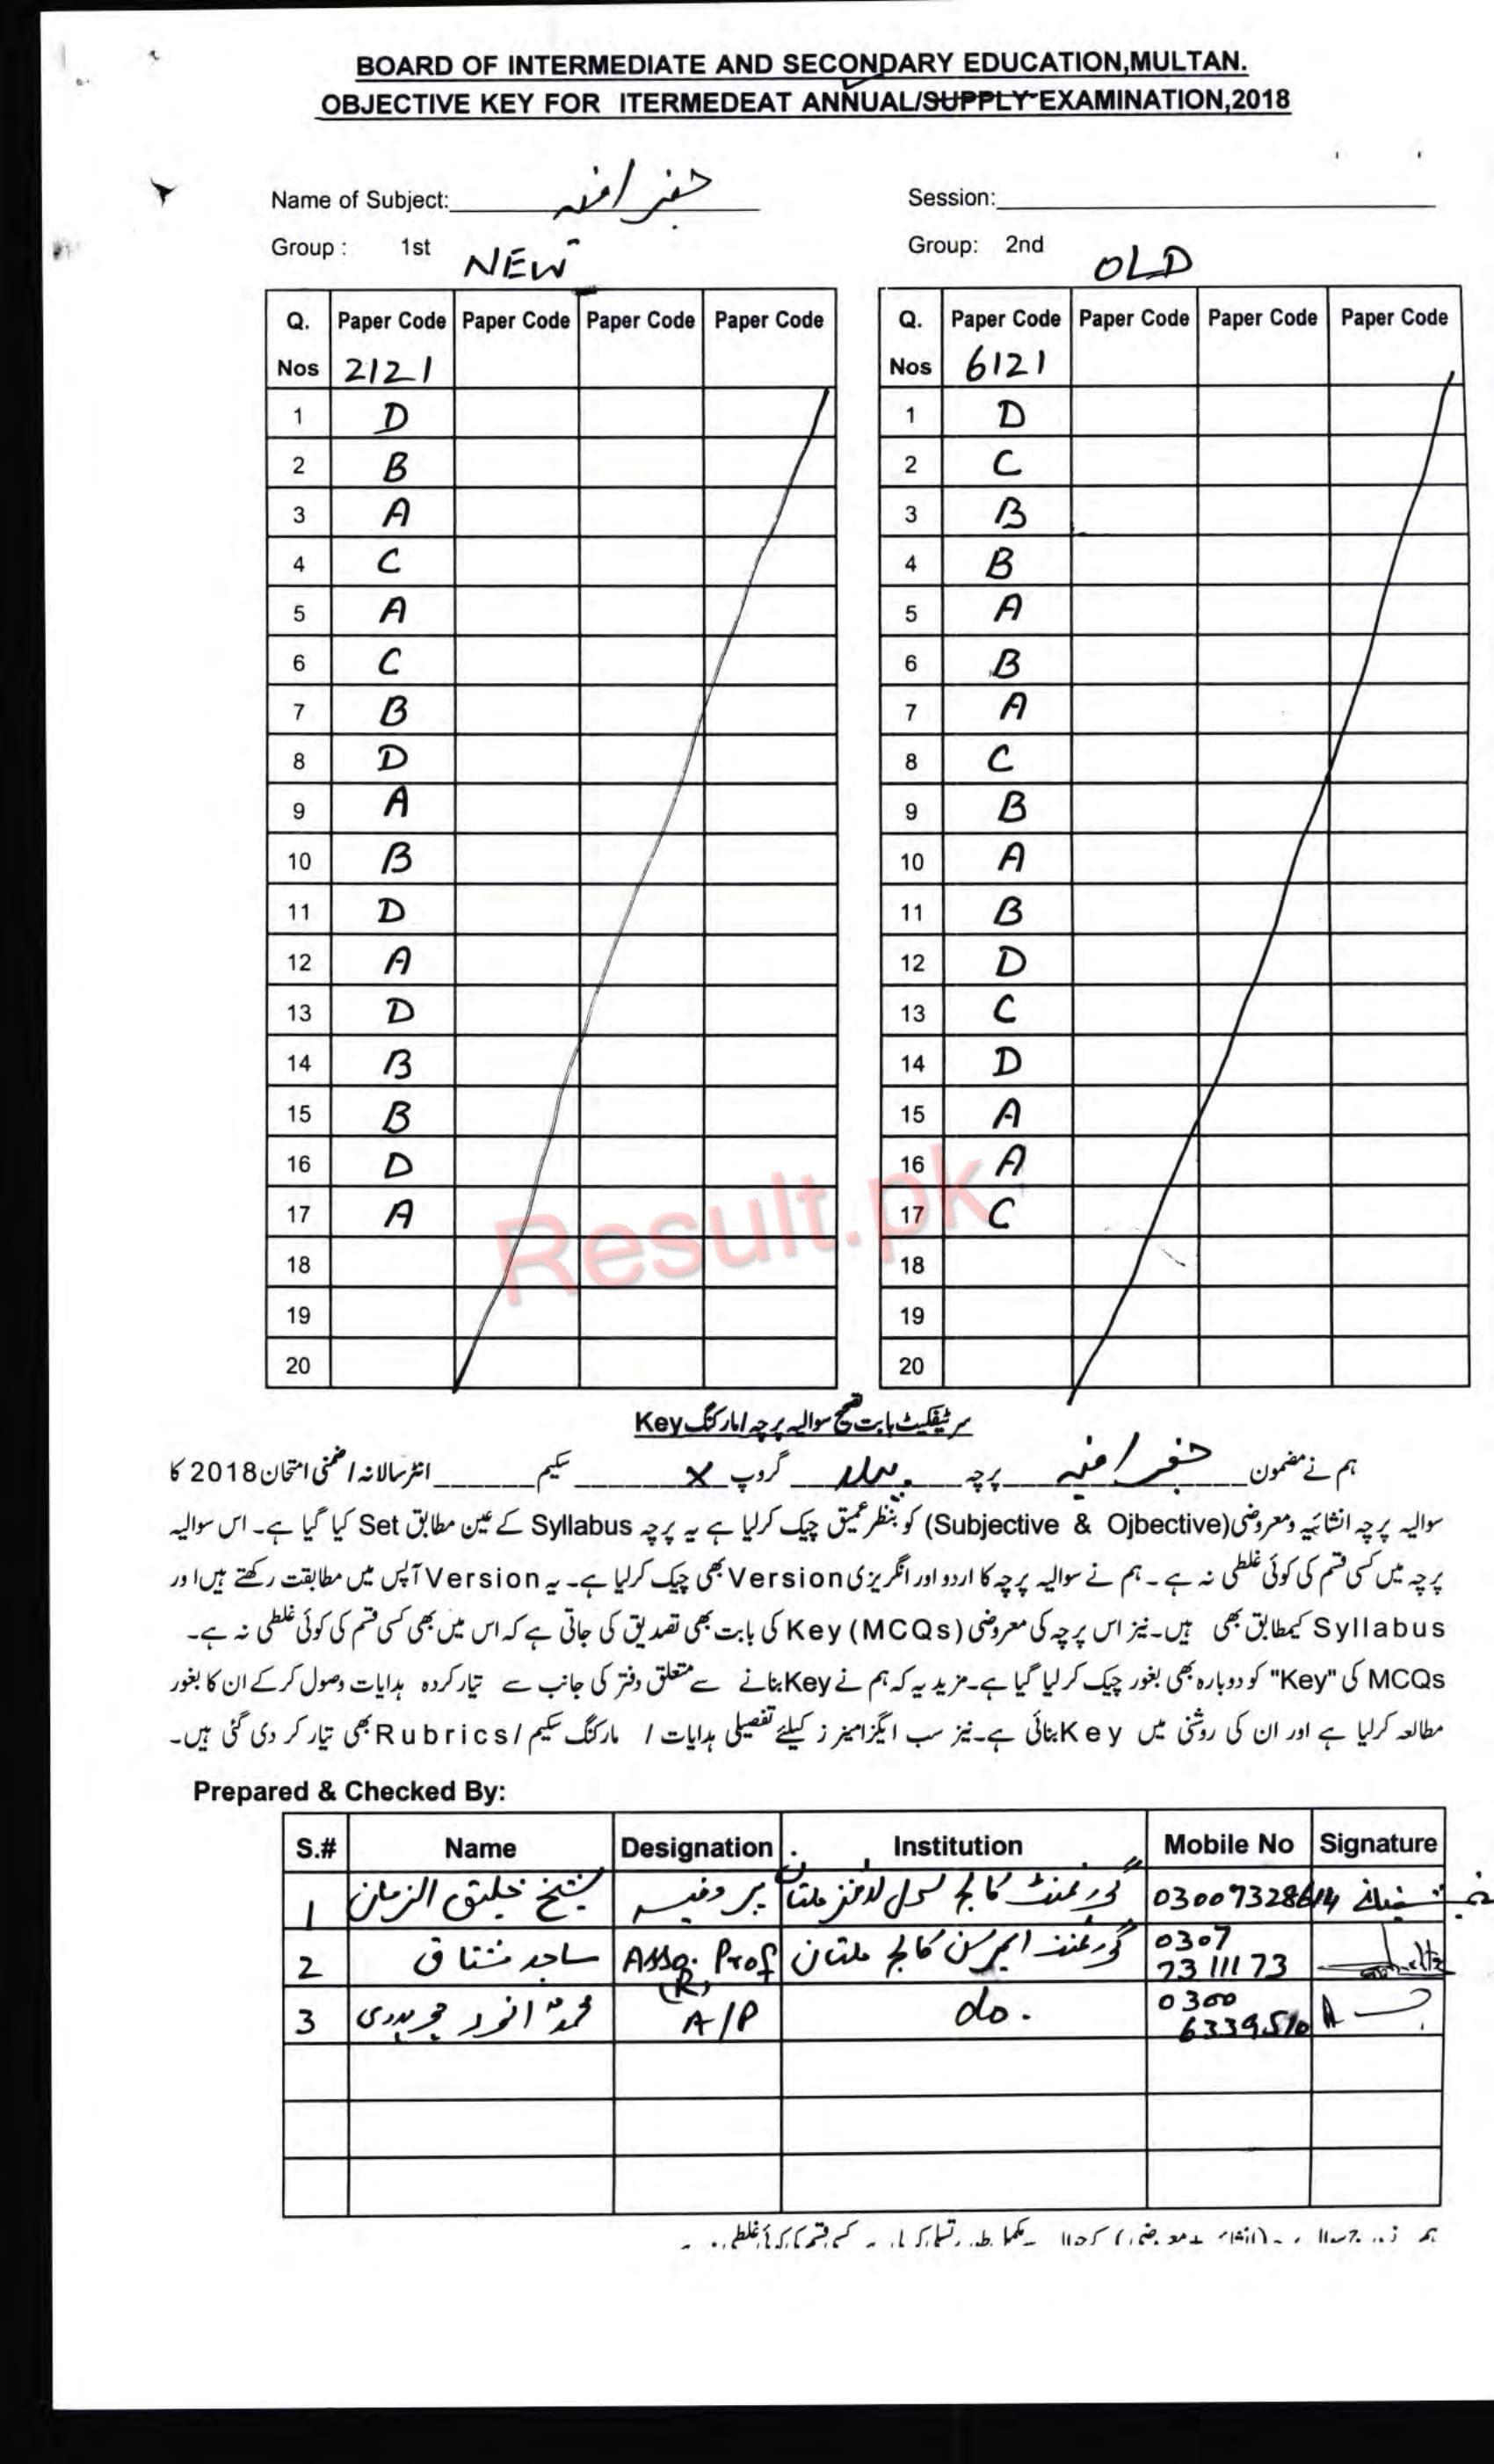 BOARD OF INTERMEDIATE AND SECONDARY EDUCATION,MULTAN.
OBJECTIVE KEY FOR ITERMEDEAT ANNUAL/SUPPLY EXAMINATION,2018
Name of Subject: جغرافیہ Session:
Group : 1st NEW Group: 2nd OLD
Q. Nos Paper Code Paper Code Paper Code Paper Code Q. Nos Paper Code Paper Code Paper Code Paper Code
2121 6121
1 D 1 D
2 B 2 C
3 A 3 B
4 C 4 B
5 A 5 A
6 C 6 B
7 B 7 A
8 D 8 C
9 A 9 B
10 B 10 A
11 D 11 B
12 A 12 D
13 D 13 C
14 B 14 D
15 B 15 A
16 D 16 A
17 A 17 C
18 18
19 19
20 20
Result.pk
سرٹیفکیٹ بابت تصحیح سوالیہ پرچہ/مارکنگ Key
ہم نے مضمون جغرافیہ پرچہ گروپ x سکیم انٹر سالانہ/ضمنی امتحان 2018 کا
سوالیہ پرچہ انشائیہ و معروضی (Subjective & Ojbective) کو بنظر عمیق چیک کرلیا ہے یہ پرچہ Syllabus کے عین مطابق Set کیا گیا ہے۔ اس سوالیہ
پرچہ میں کسی قسم کی کوئی غلطی نہ ہے۔ ہم نے سوالیہ پرچہ کا اردو اور انگریزی Version بھی چیک کرلیا ہے۔ یہ Version آپس میں مطابقت رکھتے ہیں اور
Syllabus کیمطابق بھی ہیں۔ نیز اس پرچہ کی معروضی (MCQs) Key کی بابت بھی تصدیق کی جاتی ہے کہ اس میں بھی کسی قسم کی کوئی غلطی نہ ہے۔
MCQs کی "Key" کو دوبارہ بھی بغور چیک کرلیا گیا ہے۔ مزید یہ کہ ہم نے Key بنانے سے متعلق دفتر کی جانب سے تیار کردہ ہدایات وصول کرکے ان کا بغور
مطالعہ کرلیا ہے اور ان کی روشنی میں Key بنائی ہے۔ نیز سب ایگزامینرز کیلئے تفصیلی ہدایات / مارکنگ سکیم /Rubrics بھی تیار کر دی گئی ہیں۔
Prepared & Checked By:
S.# Name Designation Institution Mobile No Signature
1 شیخ خلیق الزمان پروفیسر گورنمنٹ کالج سول لائنز ملتان 03007328614
2 ساجد مشتاق Asso. Prof (R) گورنمنٹ ایمرسن کالج ملتان 0307 7311173
3 محمد انور چوہدری A/P do. 0300 6339510